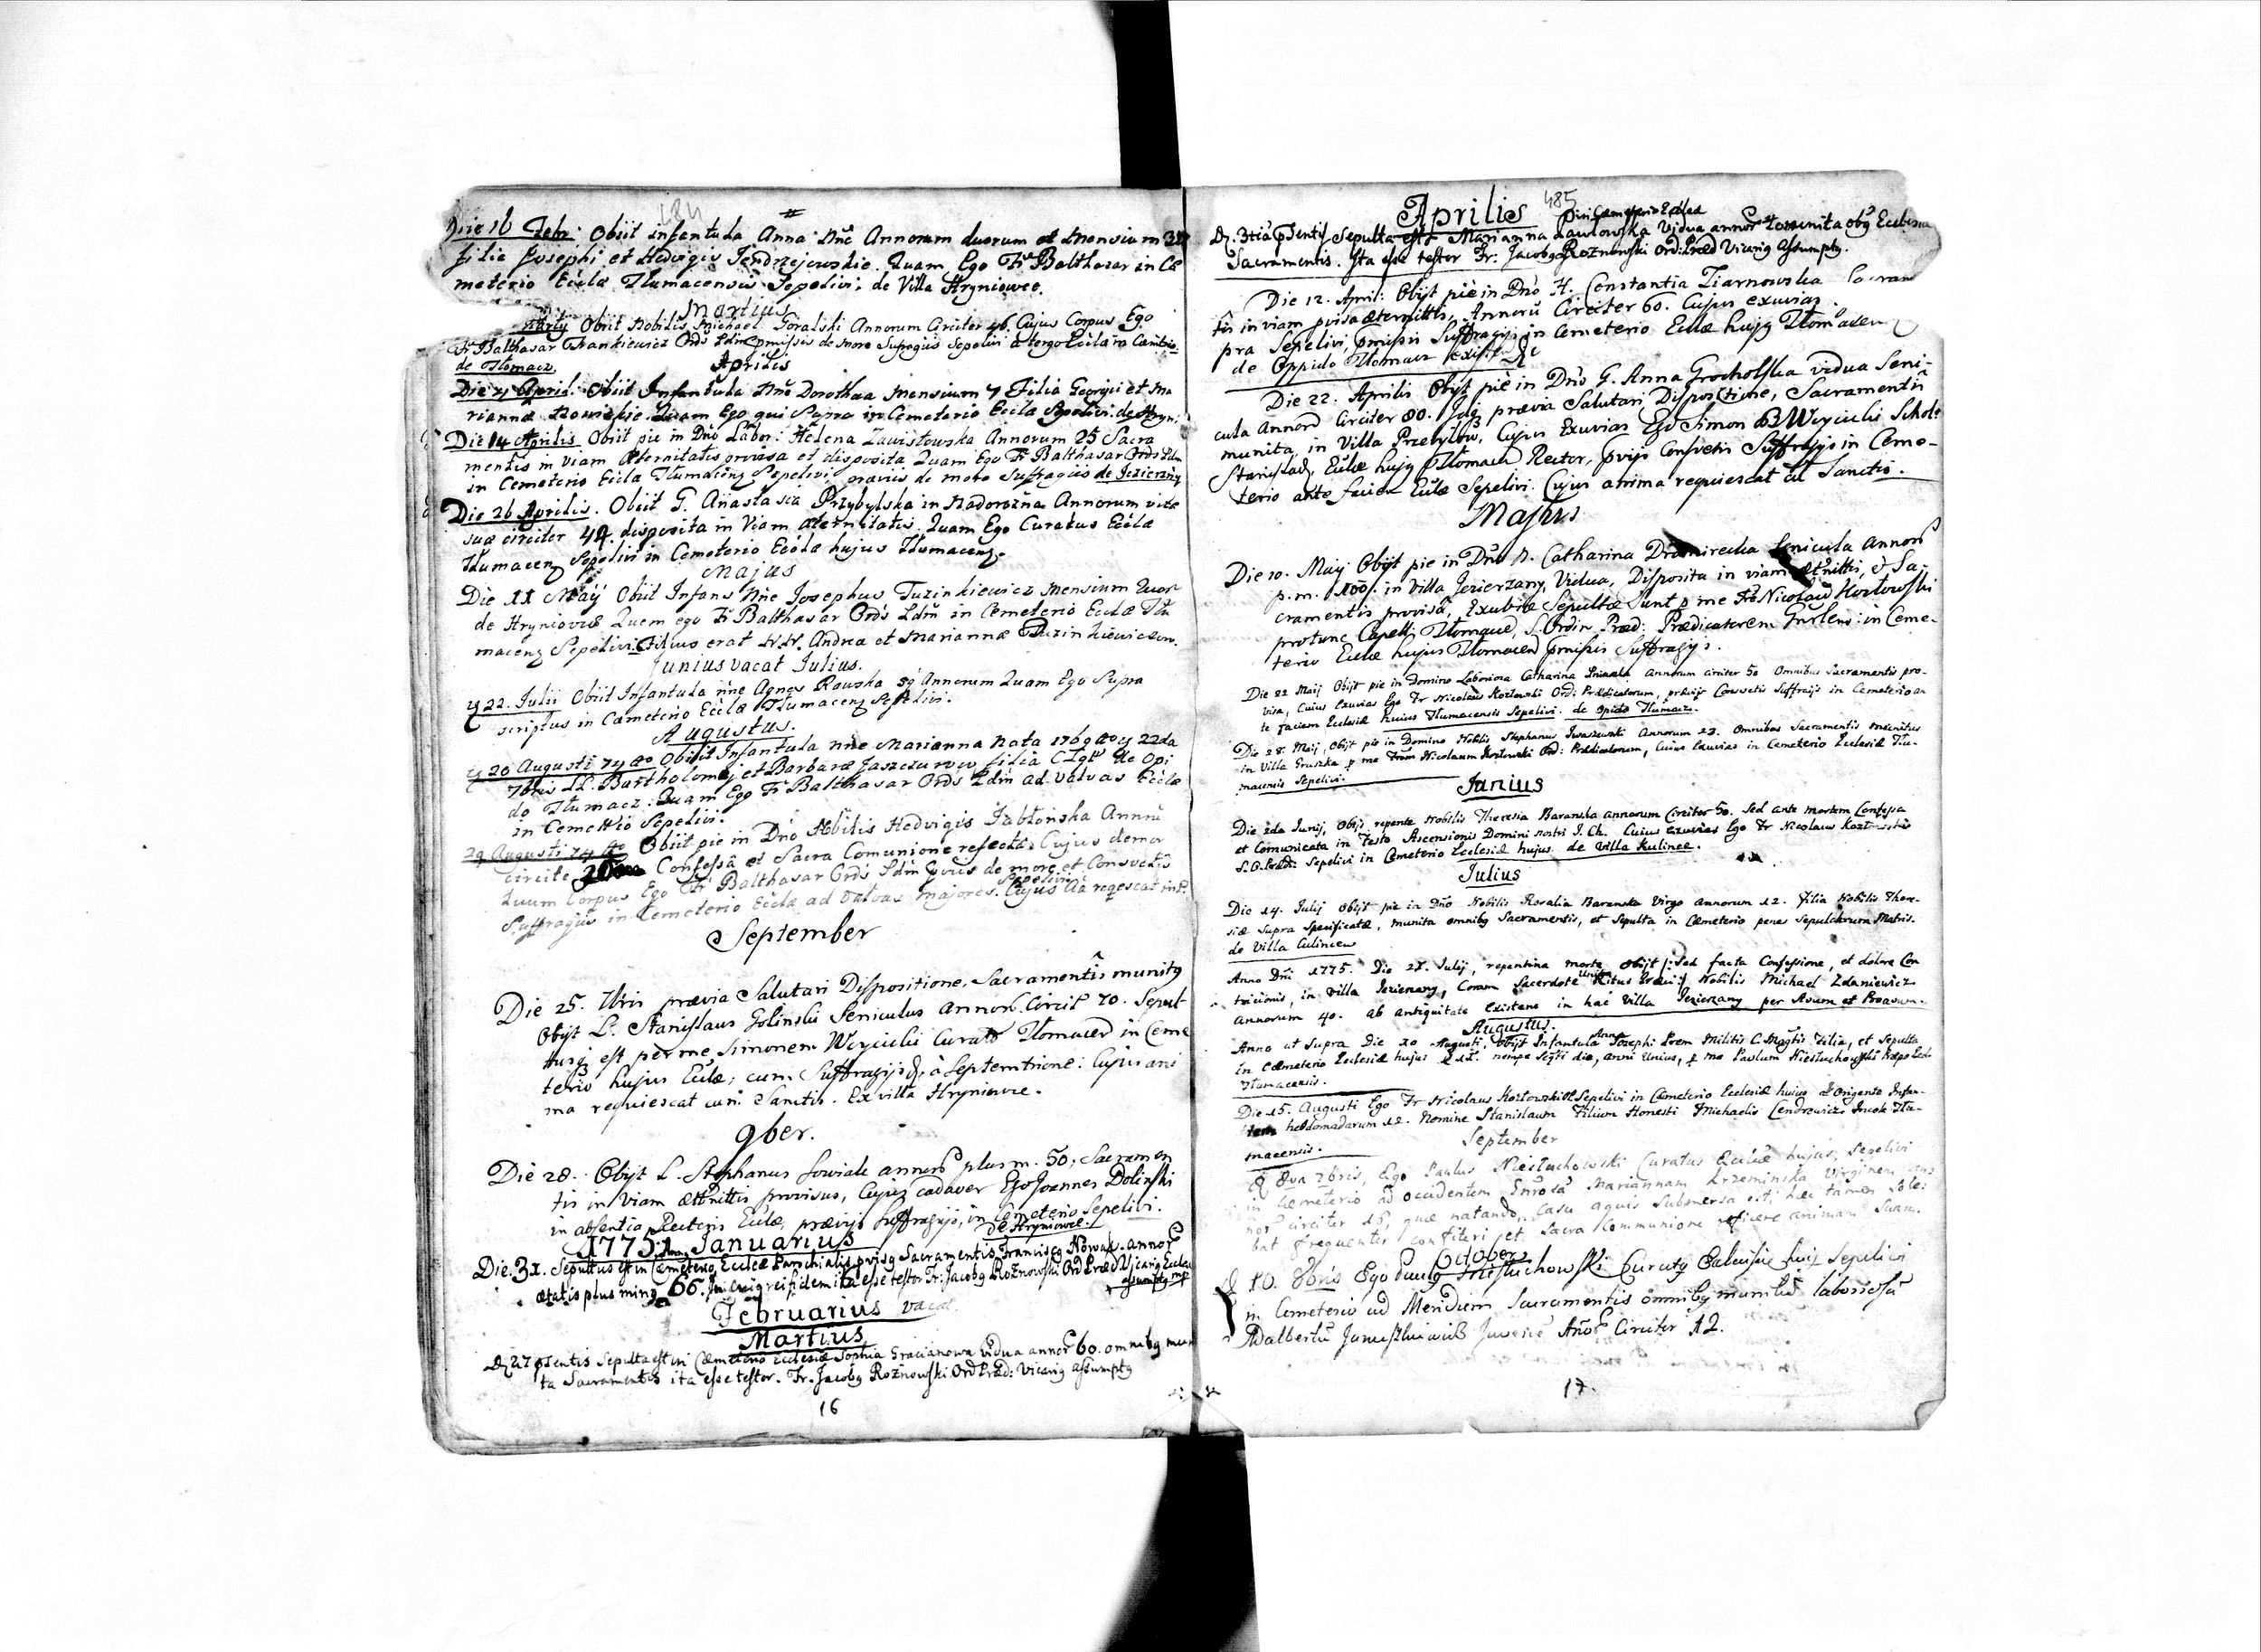 184
Die 16 Febr: Obiit infantula Anna Nne Annorum duorum et Mensium
filia Josephi et Hedvigis Jendrzejewskie. Quam Ego Fr Balthasar in Cæ
meterio Ecclæ Tłumacensis Sepelivi, de Villa Hryniowce.
Martius
Martij Obiit Nobilis Michael Goralski Annorum Circiter 46. Cujus Corpus Ego
Fr Balthasar Frankiewicz Ords Pdm pmissis de more Sufragiis Sepelivi a tergo Ecclæ in Cæmtrio
de Tłomacz.
Aprilis
Die 4 Aprilis Obiit Infantula Nne Dorothea Mensium 7 Filia Georgii et Ma
riannæ Quam Ego qui Supra in Cemeterio Ecclæ Sepelivi. de Hryni:
Die 14 Aprilis Obiit pie in Dno Labor: Helena Zawistowska Annorum 25 Sacra
mentis in viam Æternitatis provisa et disposita Quam Ego Fr Balthasar Ords Pdm
in Cemeterio Eccla Tłumacens Sepelivi, præviis de more Suffragiis de Jezierzany
Die 26 Aprilis. Obiit G. Anastasia Przybylska in Nadorozna Annorum vitæ
suæ circiter 44. disposita in Viam æternitatis. Quam Ego Curatus Ecclæ
Tłumacens Sepelivi in Cemeterio Ecclæ hujus Tłumacens.
Majus
Die 11 Maÿ Obiit Infans Nne Josephus Tuzinkiewicz Mensium Quor
de Hryniovce Quem ego Fr Balthasar Ords Pdm in Cemeterio Ecclæ Tłu
macens Sepelivi. Filius erat N.N. Andreæ et Mariannæ Tuzinkiewiczow.
Junius vacat Julius.
22. Julii Obiit Infantula nne Agnes Rawska Annorum Quam Ego Supra
scriptus in Cæmeterio Ecclæ Tłumacens Sepelivi.
Augustus.
20 Augusti 74 Ao Obiit Infantula nne Marianna Nata 1769 22da
7bris LL. Bartholomæj et Barbaræ Jaszczurow filia de Opi
do Tłumacz. Quam Ego Fr Balthasar Ords Pdm ad valvas Ecclæ
in Cemettrio Sepelivi.
29 Augusti 74 Ao Obiit pie in Dno Nobilis Hedvigis Jabłońska Annrū
circite Confessâ et Sacra Comunione refectâ. Cujus demor
tuum Corpus Ego Fr Balthasar Ords Pdm pviis de more et Consuetis
Suffragiis in Cemeterio Ecclæ ad valvas majores. Sepelivi Cujus Aā reqescat in P.
September
Die 25. 7bris prævia Salutari Dispositione, Sacramentis munitq
Obijt L. Stanislaus Golinski Seniculus Annor. Circit 70. Sepul-
tusq est per me Simonem Weyciclii Curatq Tłomacen in Ceme
terio hujus Eccłæ, cum Suffragijs à Septemtrione: Cujus ani
ma requiescat cum Sanctis. Ex villa Hryniovce.
9ber.
Die 28. Obijt L. Stephanus annor plus m. 50, Sacramen
tis in viam ætrnittis provisus, Cujus cadaver Ego Joannes Dolinski
in absentia Rectoris Ecclæ, prævijs suffragijs, in Cemeterio Sepelivi.
de Hryniowce.
1775. Anni Januarius
Die. 31. Sepultus est in Cemeterio Ecclæ Parochialis pvisq Sacramentis Franciscq Nowak. annor
ætatis plus minq 66. In cuiq rei fidem ita esse testor Fr: Jacobq Rożnowski Ord Præd Vicariq Eccles
assumptq mp
Februarius vacat
Martius
D. 27 pntis Sepulta est in Cæmeterio Ecclesiæ Sophia Gracianowa vidua annor 60. omnibq muni
ta Sacramentis ita esse testor. Fr. Jacobq Rożnowski Ord Præd: Vicariq assumptq
16
485
Aprilis
D. 3tia pñentis Sepulta est Marianna Pawlowska Vidua annor munita obq Ecclesiæ
Sacramentis. Ita esse testor Fr: Jacobq Rożnowski Ord: Præd Vicariq Assumptq.
Die 12. April: Obijt piè in Dno H. Constantia Ziarnowska Sacram
tis in viam pvisa æternittis, Annorū Circiter 60. Cujus exuvias
pra Sepelivi, pmissis Suffragijs in Cemeterio Ecclæ hujq Tłomacen
de Oppido Tłomacz
Die 22. Aprilis Obijt piè in Dno G. Anna Grocholska vidua Seni-
cula Annord Circiter 80. prævia Salutari Dispositione, Sacramentis
munita, in Villa Przybyłow, Cujus Exuvias Ego Simon Weyciclii Schol:
Stanislao, Ecclæ hujq Tłomacen Rector, pvijs Consvetis Suffragijs in Ceme-
terio ante faciem Ecclæ Sepelivi. Cujus anima requiescat cū Sanctis.
Majus
Die 10. Maij Obijt pie in Dno N. Catharina Dramirecka Senicula annor
p. m. 100. in Villa Jezierzany, Vidua, Disposita in viam ætrnittis, & Sa-
cramentis provisa, Exuviæ Sepultæ Sunt p me Fr Nicolaū Kozłowski
protunc Capell: Tłomacen, S. Ordin Præd: Prædicatorem in Ceme-
terio Ecclæ hujus Tłomacen pmissis Suffragijs.
Die 22 Maij Obijt pie in Domino Laboriosa Catharina Annorum circiter 50 Omnibus Sacramentis pro-
visa, Cuius Exuvias Ego Fr Nicolaus Kozłowski Ord: Prædicatorum, prævijs Consvetis Suffragijs in Cemeterio an
te faciem Ecclesiæ huius Tłumacensis Sepelivi. de Opido Tłumacz.
Die 28. Maij, Obijt pie in Domino Nobilis Stephanus Iwaszewski Annorum 22. Omnibus Sacramentis munitus
in Villa Gruszka p me Fram Nicolaum Kozłowski Ord: Prædicatorum, Cuius Exuvias in Cemeterio Ecclesiæ Tłu-
macensis Sepelivi.
Junius
Die 2da Junij, Obijt repente Nobilis Theresia Baranska annorum Circiter 50. Sed ante mortem Confessa
et Comunicata in Festo Ascensionis Domini nostri J. Ch. Cuius Exuvias Ego Fr Nicolaus Kozłowski
S.O.Præd: Sepelivi in Cemeterio Ecclesiæ hujus de Villa Kulince.
Julius
Die 14. Julij Obijt pie in Dno Nobilis Rosalia Baranska Virgo annorum 12. Filia Nobilis There-
siæ Supra Specificatæ, munita omnibq Sacramentis, et Sepulta in Cæmeterio penes Sepulchrum Matris.
de Villa Culincew
Anno Dni 1775. Die 21. Julij, repentina morte Obijt /: Sed facta Confessione, et dolore Con
tricionis, in Villa Jezierzany, Coram Sacerdote Ritus Uniti Græci :/ Nobilis Michael Zdaniewicz
Annorum 40. ab antiquitate Existens in hac Villa Jezierzany per Avum et Proavum.
Augustus.
Anno ut Supra Die 10 Augusti, Obijt Infantula Anna Josephi Lvem Militis C. Magtis Filia, et Sepulta
in Cæmeterio Ecclesiæ hujus nempe Seqti die, anni Unius, p me Paulum Niesłuchowski Præpo Eccl-
Tłumacensis.
Die 15. Augusti Ego Fr Nicolaus Kozłowski Sepelivi in Cæmeterio Ecclesiæ huius ab Oriente Infan-
tem hebdomadarum 12. Nomine Stanislaum Filium Honesti Michaelis Cendrowicz Incolæ Tłu-
macensis.
September
D 8va 7bris, Ego Paulus Niesłuchowski Curatus Ecclæ hujus, Sepelivi
in Cæmeterio ad occidentem Gnrosā Mariannam Krzeminska Virginem an
nor circiter 16, quæ natando, Casu aquis Submersa est; hæc tamen Sole:
bat frequenter confiteri et Sacra Communione reficere animam Suam.
October
D 10. 8bris Ego Paulq Niesłuchowski Curatq Ecclesiæ hujq Sepelivi
in Cemeterio ad Meridiem Sacramentis omnibq munitū laboriosū
Adalbertū Januszkiewicz Juvenē Añor Circiter 12.
17.